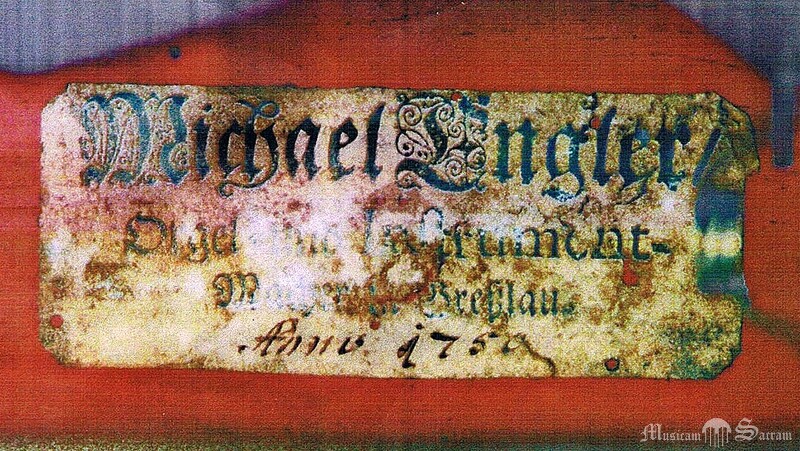 Michael Engler,
Orgel- und Instrument-
Macher in Breßlau.
Anno 1750
Musicam Sacram